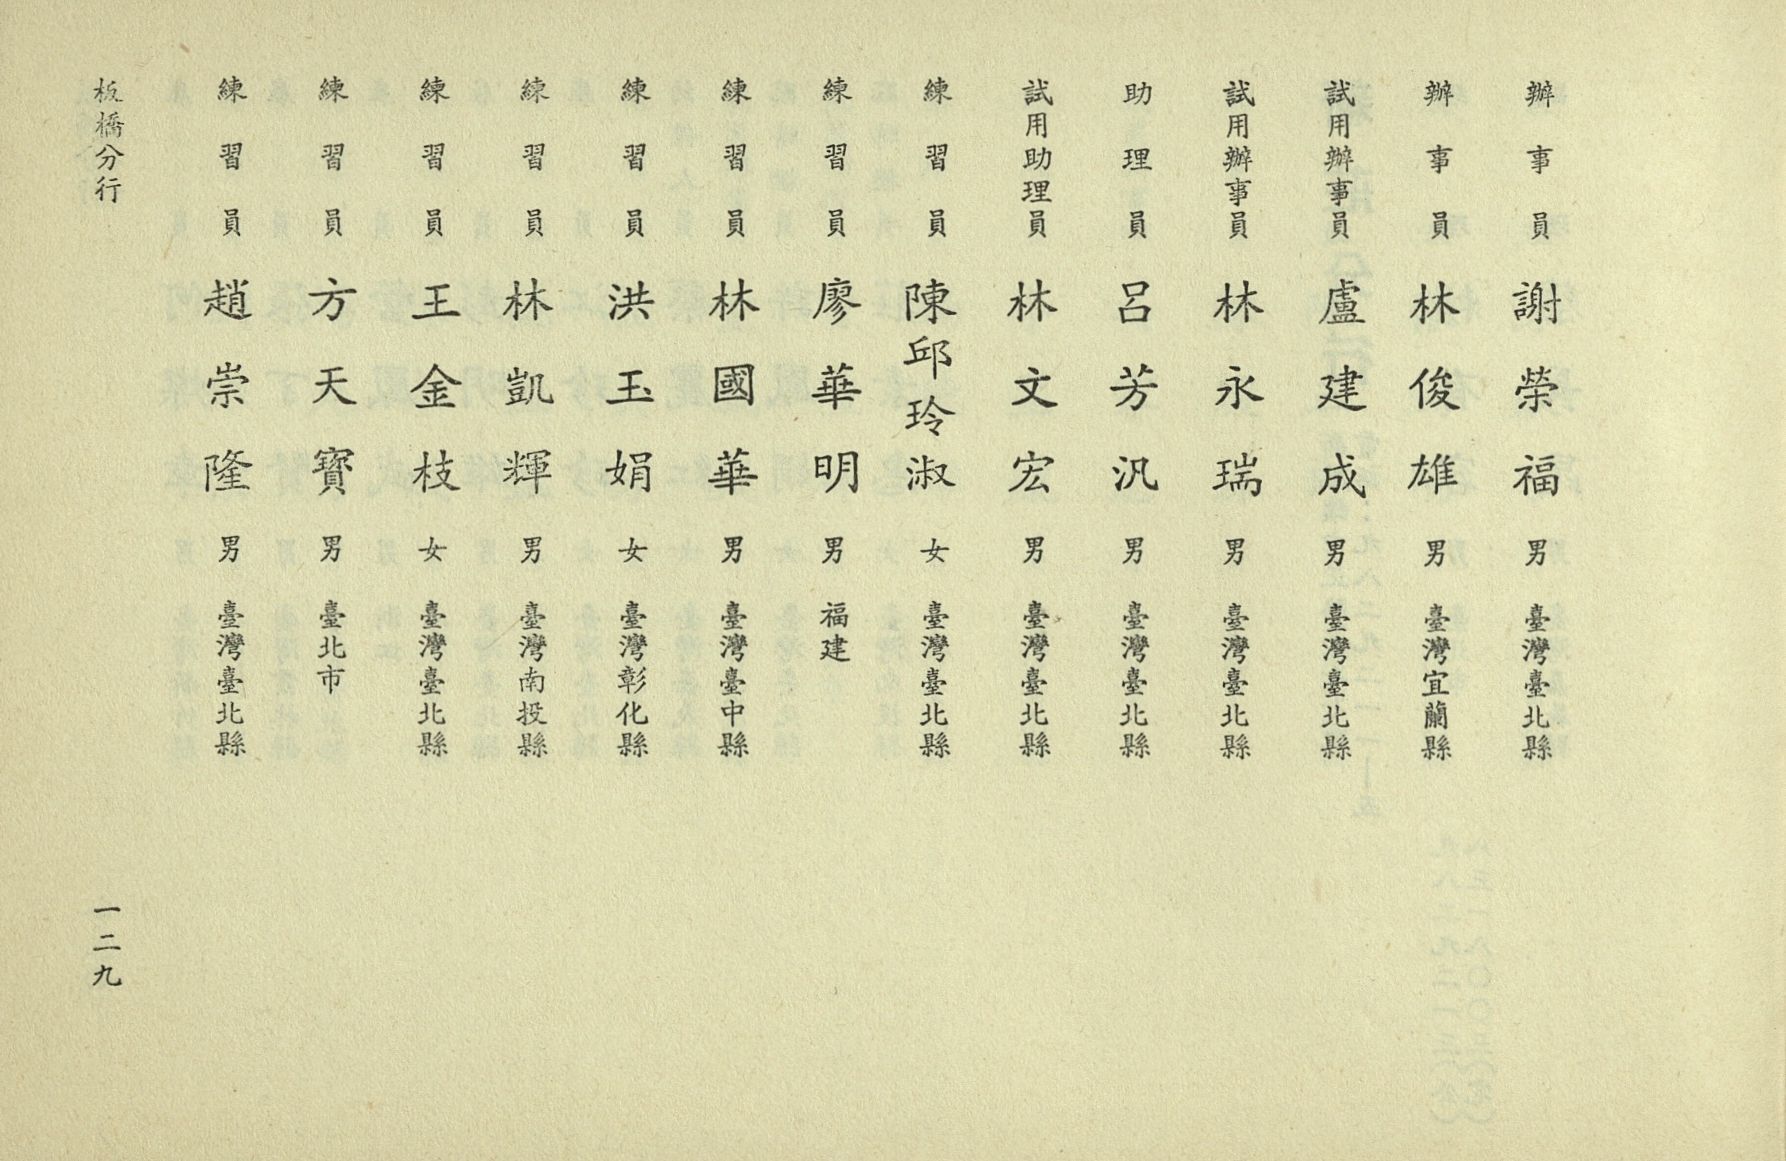 辦事員 謝榮福 男 臺灣臺北縣
辦事員 林俊雄 男 臺灣宜蘭縣
試用辦事員 盧建成 男 臺灣臺北縣
試用辦事員 林永瑞 男 臺灣臺北縣
助理員 呂芳汎 男 臺灣臺北縣
試用助理員 林文宏 男 臺灣臺北縣
練習員 陳邱玲淑 女 臺灣臺北縣
練習員 廖華明 男 福建
練習員 林國華 男 臺灣臺中縣
練習員 洪玉娟 女 臺灣彰化縣
練習員 林凱輝 男 臺灣南投縣
練習員 王金枝 女 臺灣臺北縣
練習員 方天寶 男 臺北市
練習員 趙崇隆 男 臺灣臺北縣
板橋分行
一二九